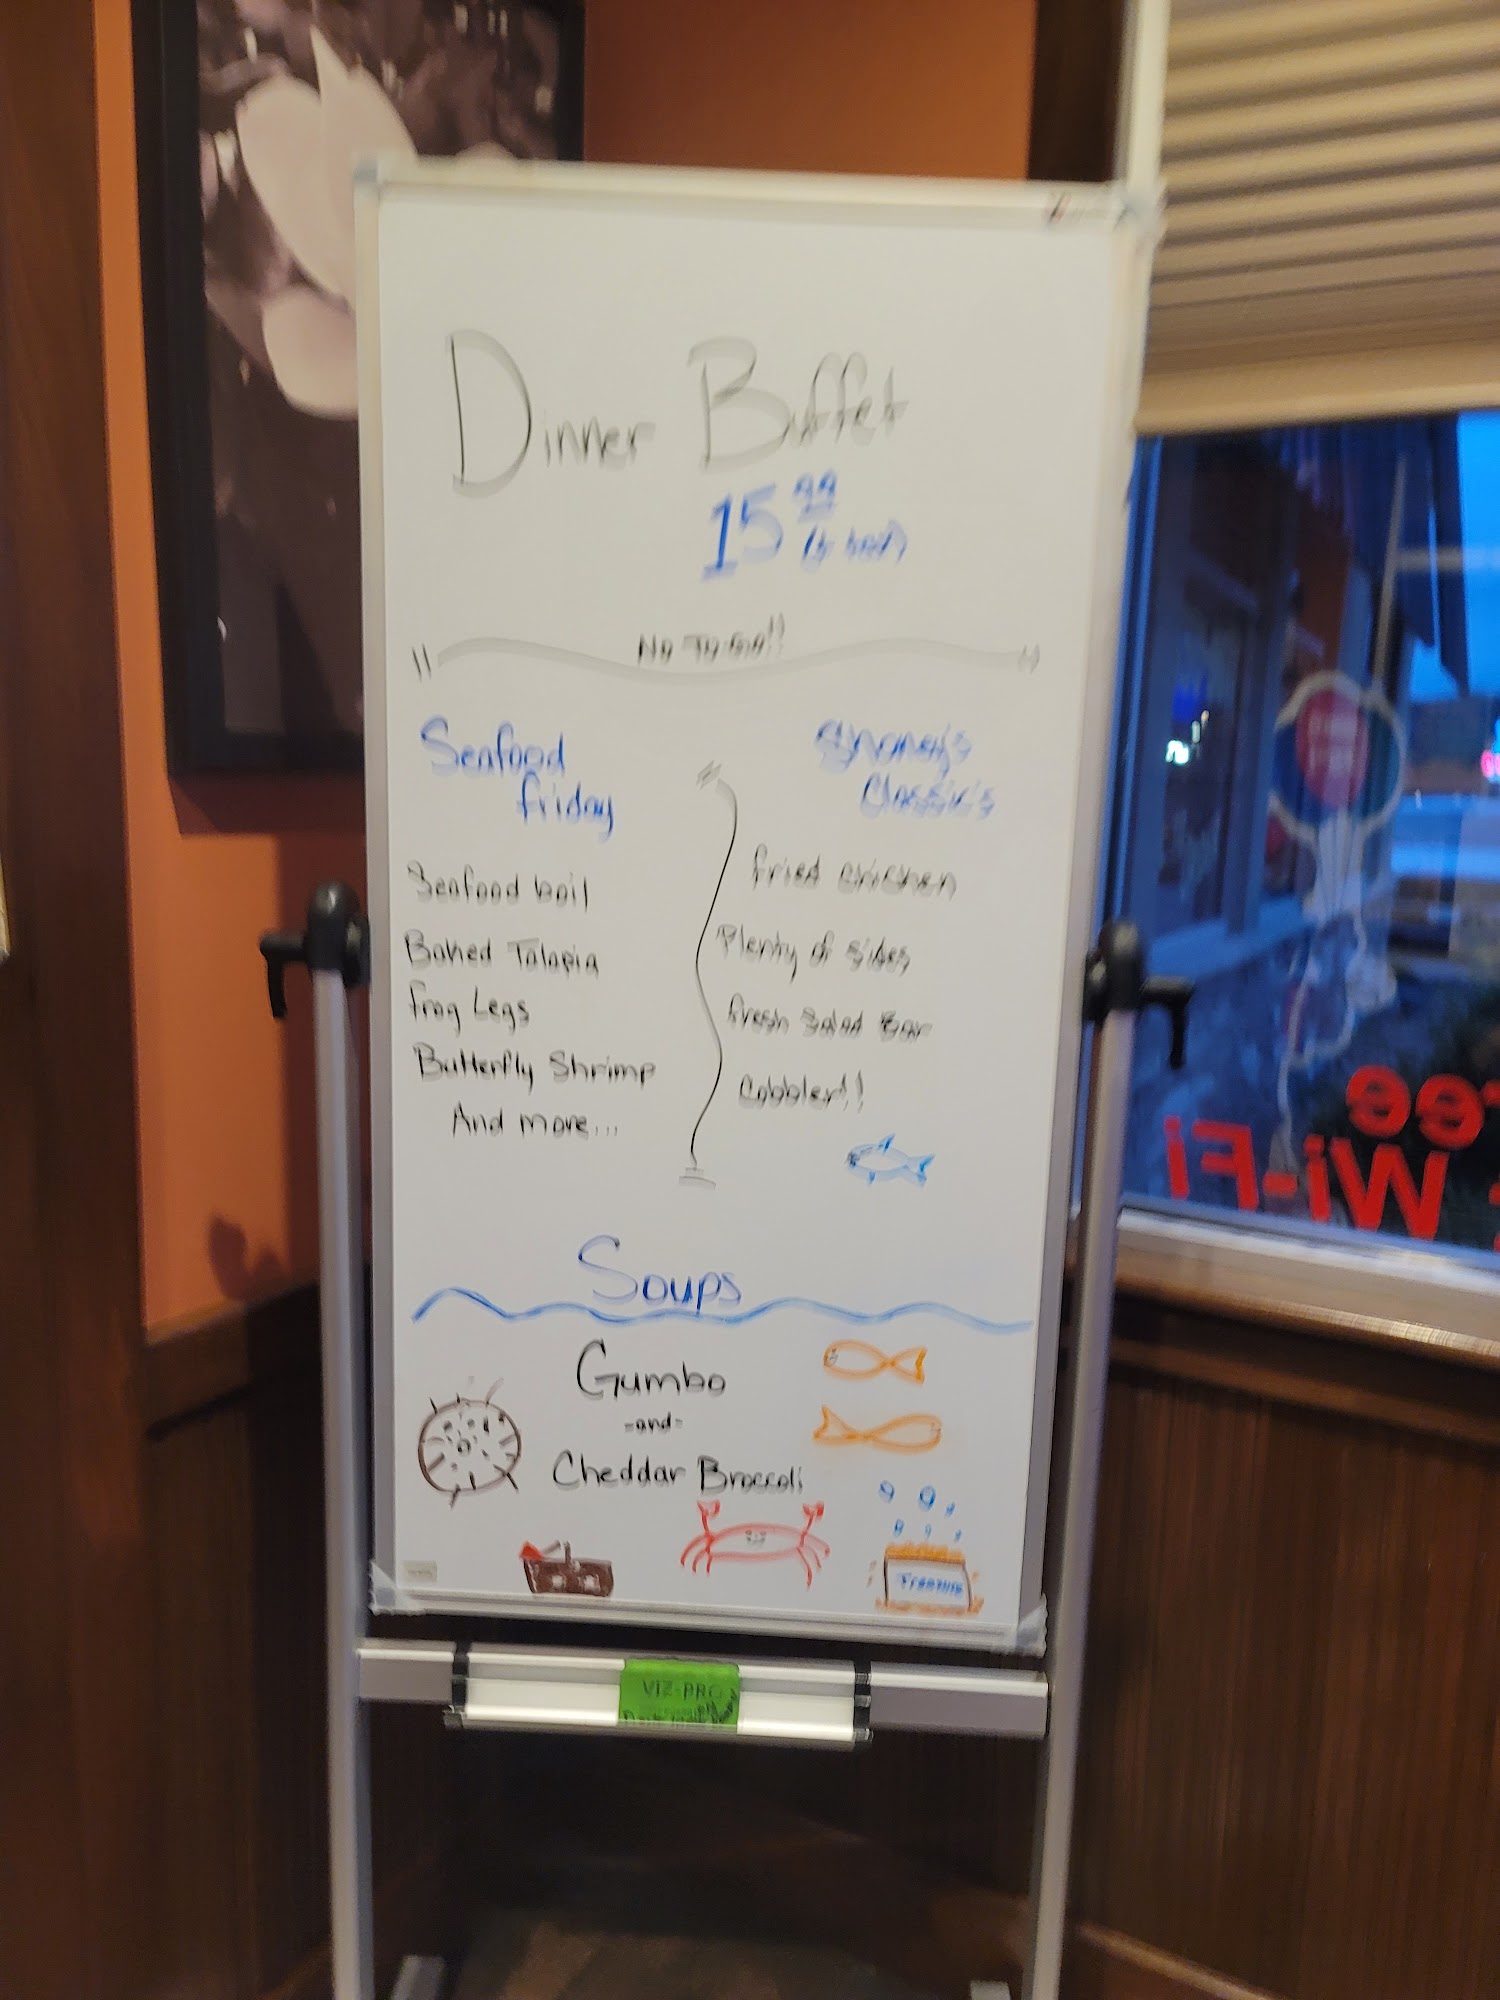 Dinner Buffet
15.99
No To-Go!!
Seafood
friday
Seafood boil
Baked Talapia
frog Legs
Butterfly Shrimp
And more...
Shoney's
Classic's
fried chicken
Plenty of sides
fresh Salad Bar
Cobbler!!
Soups
Gumbo
-and-
Cheddar Broccoli
Treasure
VIZ-PRO
Free
Wi-Fi